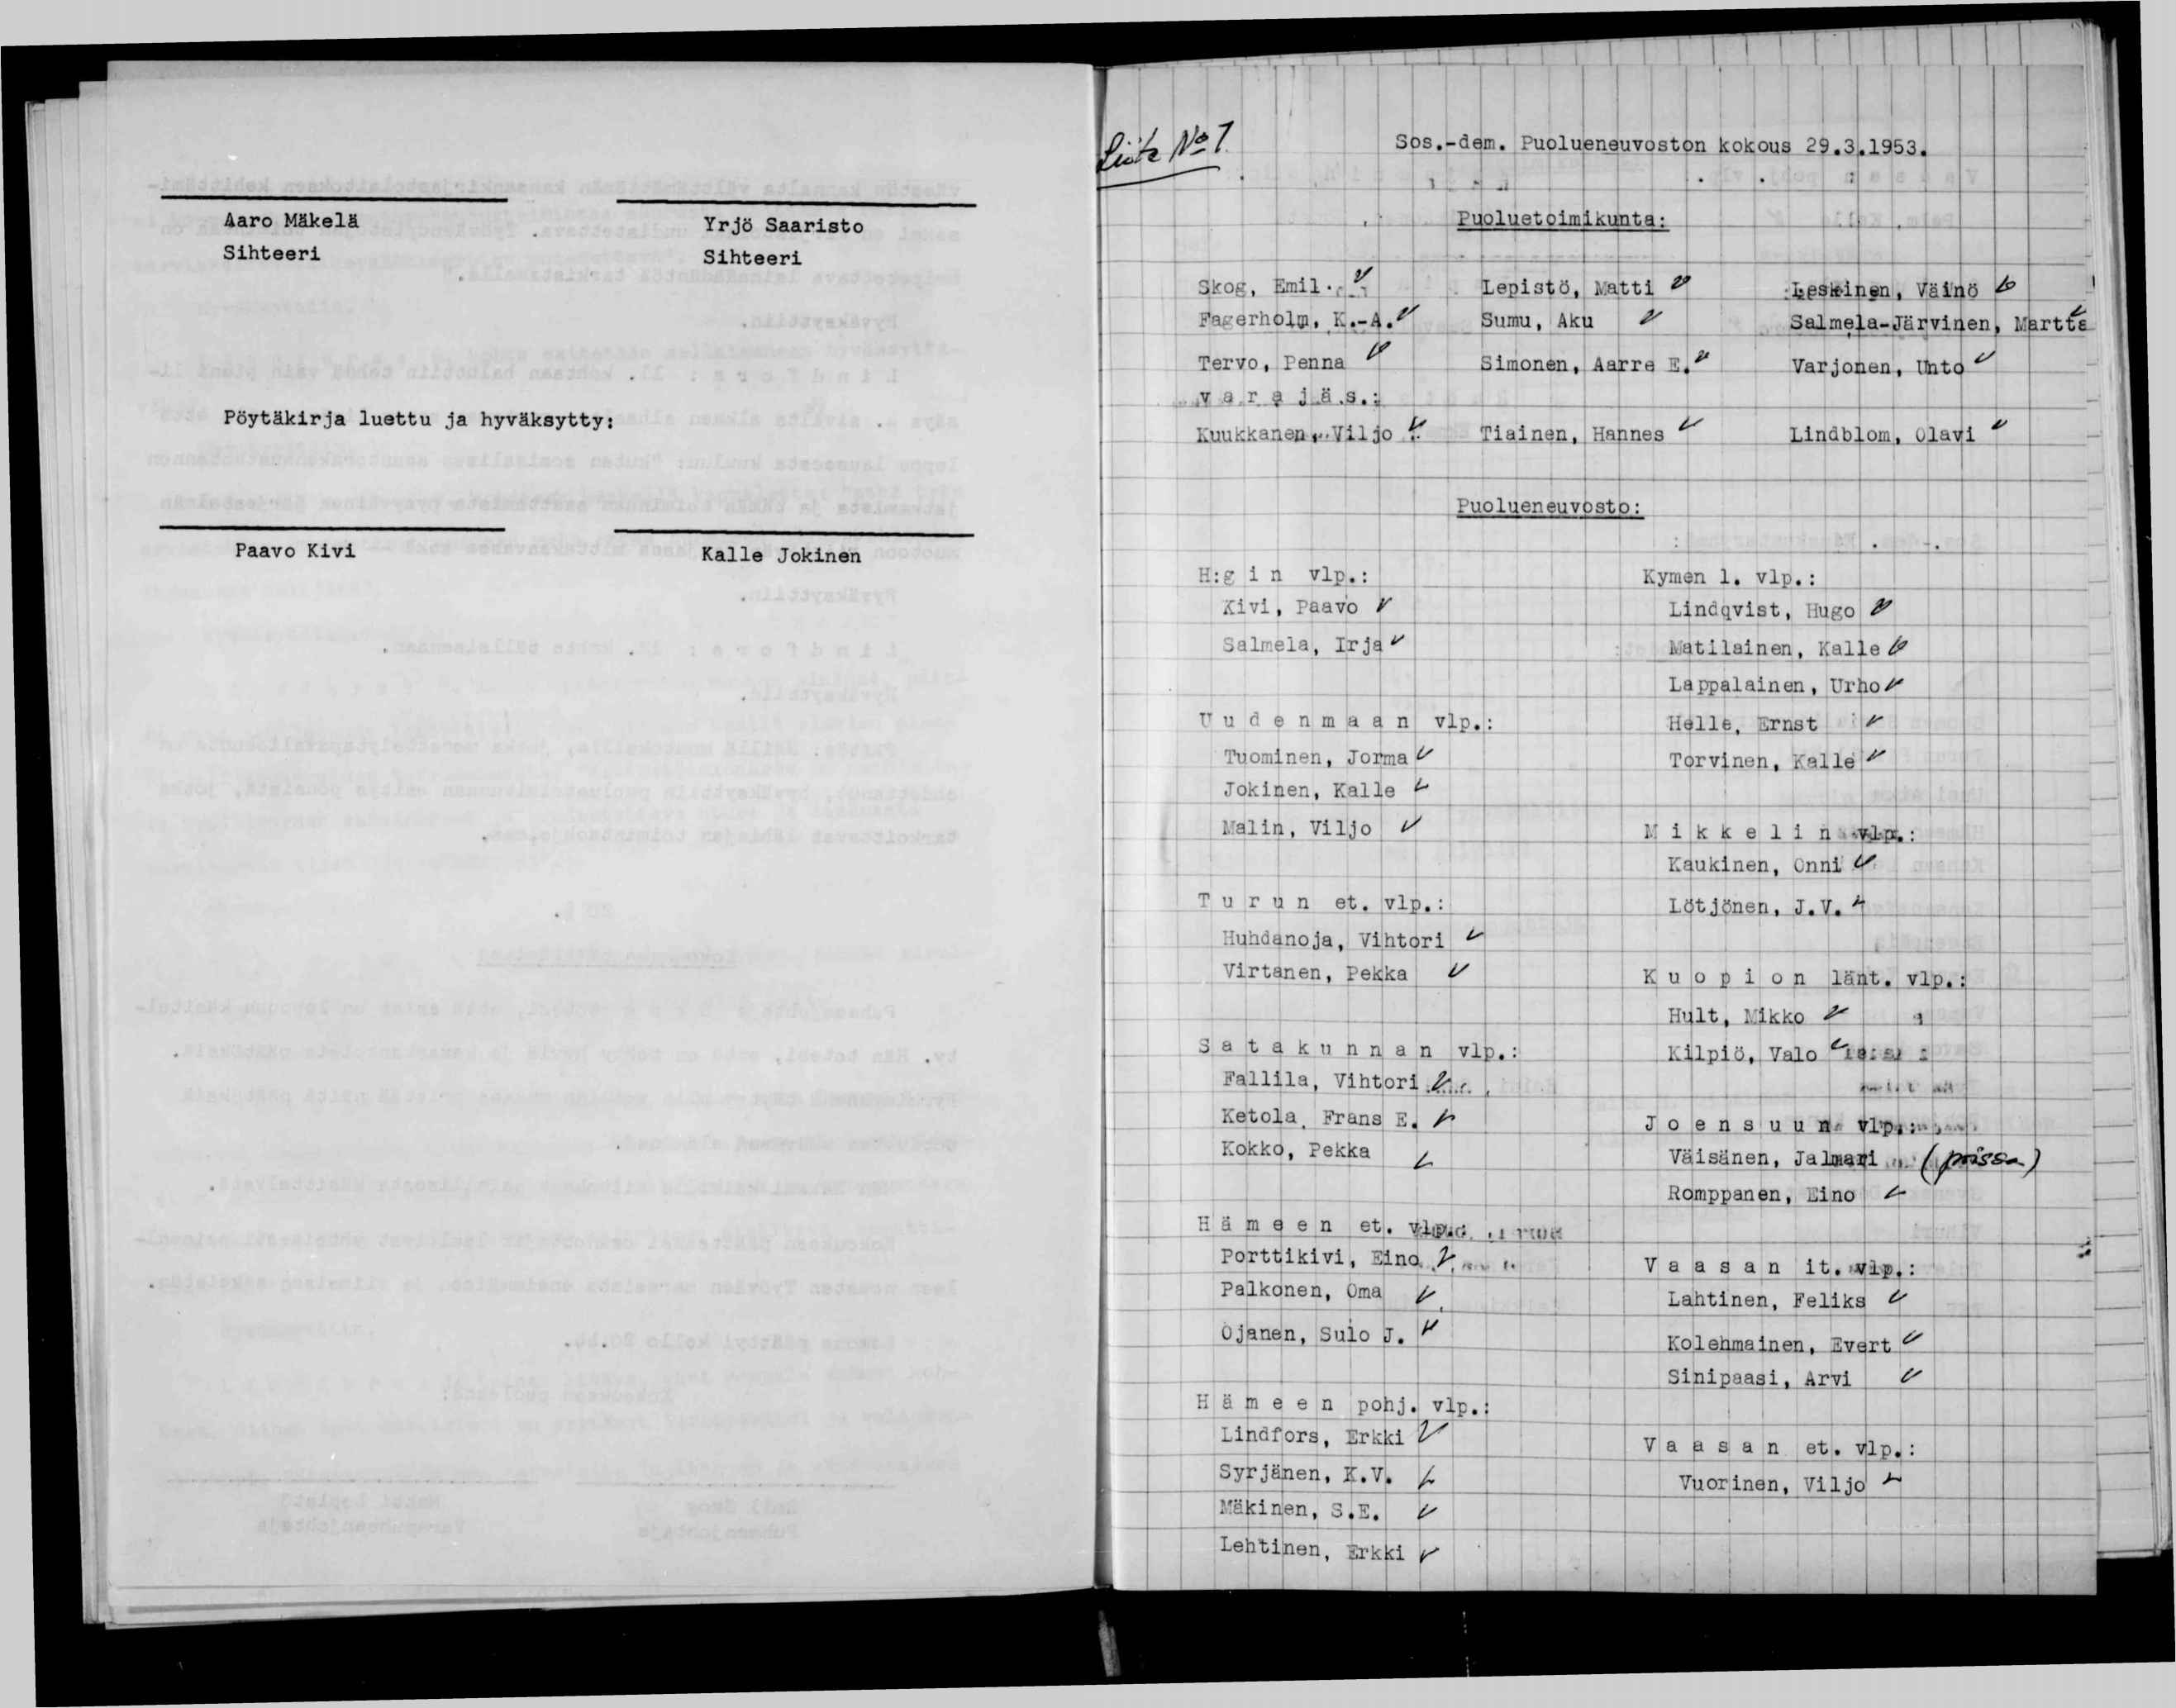 Aaro Mäkelä
Sihteeri
Yrjö Saaristo
Sihteeri
Pöytäkirja luettu ja hyväksytty:
Paavo Kivi
Kalle Jokinen
Liite No 1
Sos.-dem. Puolueneuvoston kokous 29.3.1953.
Puoluetoimikunta:
Skog, Emil Lepistö, Matti Leskinen, Väinö
Fagerholm, K.-A. Sumu, Aku Salmela-Järvinen, Martta
Tervo, Penna Simonen, Aarre E. Varjonen, Unto
v a r a j ä s.:
Kuukkanen, Viljo Tiainen, Hannes Lindblom, Olavi
Puolueneuvosto:
H:g i n vlp.:
Kivi, Paavo
Salmela, Irja
U u d e n m a a n vlp.:
Tuominen, Jorma
Jokinen, Kalle
Malin, Viljo
T u r u n et. vlp.:
Huhdanoja, Vihtori
Virtanen, Pekka
S a t a k u n n a n vlp.:
Fallila, Vihtori
Ketola, Frans E.
Kokko, Pekka
H ä m e e n et. vlp.:
Porttikivi, Eino
Palkonen, Oma
Ojanen, Sulo J.
H ä m e e n pohj. vlp.:
Lindfors, Erkki
Syrjänen, K.V.
Mäkinen, S.E.
Lehtinen, Erkki
Kymen l. vlp.:
Lindqvist, Hugo
Matilainen, Kalle
Lappalainen, Urho
Helle, Ernst
Torvinen, Kalle
M i k k e l i n vlp.:
Kaukinen, Onni
Lötjönen, J.V.
K u o p i o n länt. vlp.:
Hult, Mikko
Kilpiö, Valo
J o e n s u u n vlp.:
Väisänen, Jalmari (poissa)
Romppanen, Eino
V a a s a n it. vlp.:
Lahtinen, Feliks
Kolehmainen, Evert
Sinipaasi, Arvi
V a a s a n et. vlp.:
Vuorinen, Viljo